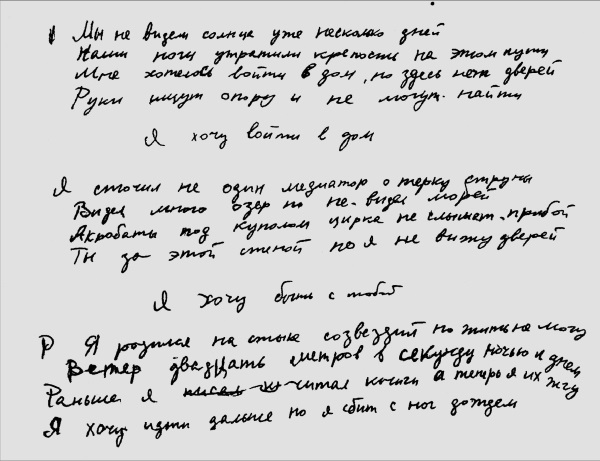 Мы не видели солнца уже несколько дней
Наши ноги утратили крепость на этом пути
Мне хотелось войти в дом, но здесь нет дверей
Руки ищут опору и не могут найти
Я хочу войти в дом
Я сточил не один медиатор о терку струны
Видел много озер но не видел морей
Акробаты под куполом цирка не слышат прибой
Ты за этой стеной но я не вижу дверей
Я хочу быть с тобой
Р Я родился на стыке созвездий но жить не могу
Ветер двадцать метров в секунду ночью и днем
Раньше я читал книги а теперь я их жгу
Я хочу идти дальше но я сбит с ног дождем